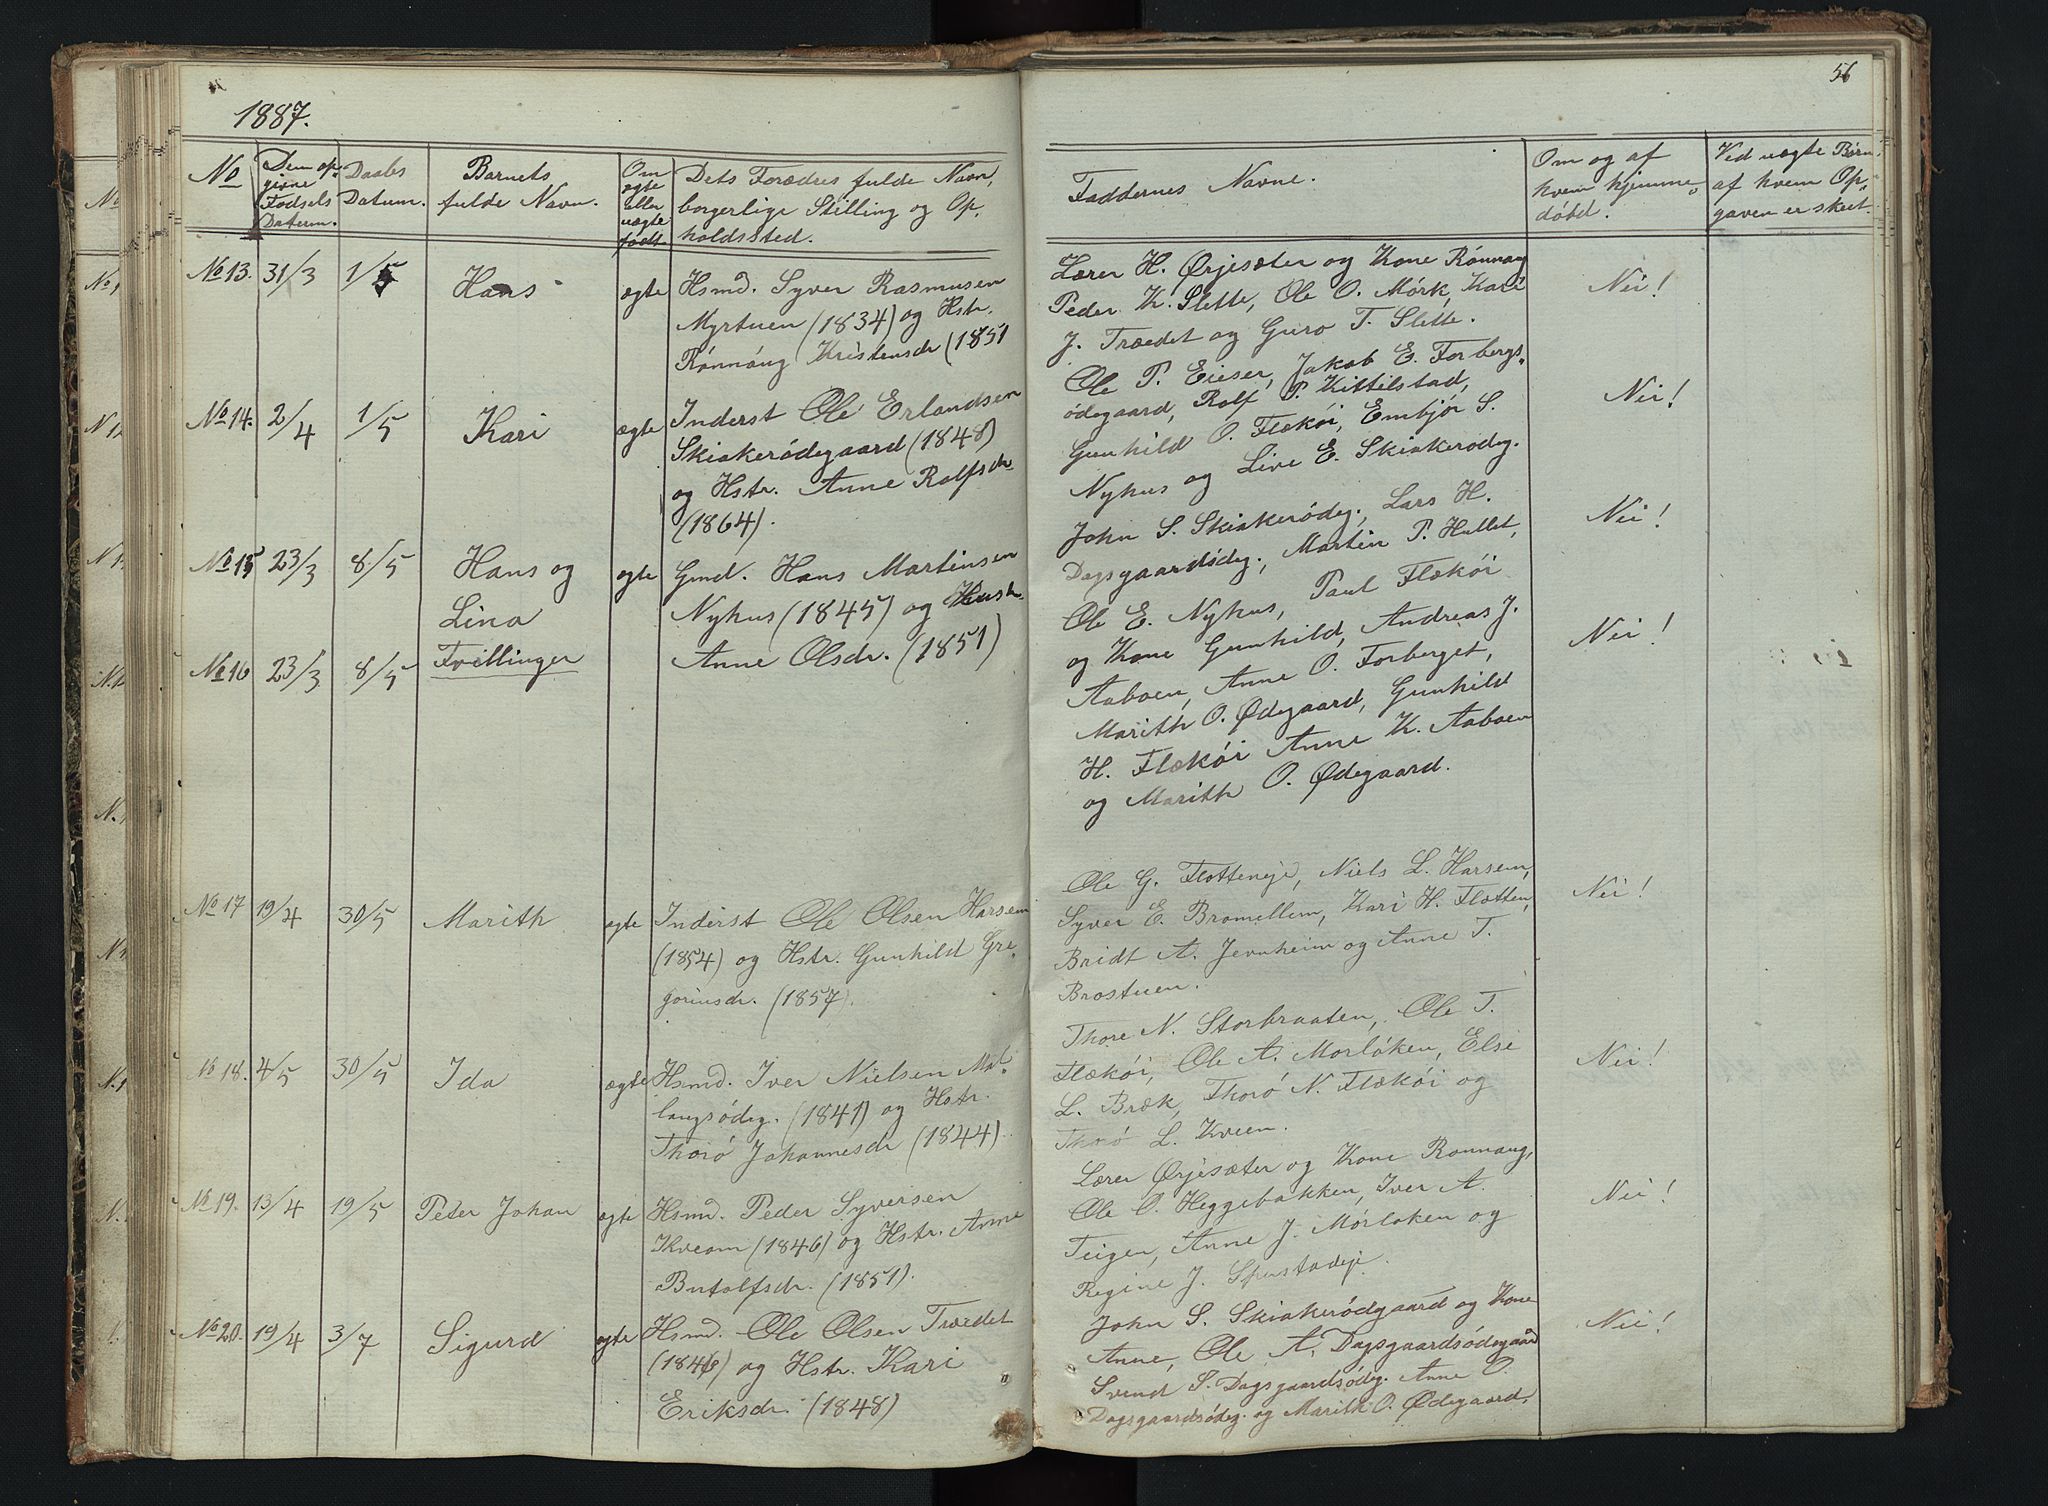 56
1887.
No
Den op-
givne
Fødsels
Datum.
Daabs
Datum.
Barnets
fulde Navn.
Om
ægte
eller
uægte
født.
Dets Forædres fulde Navn,
borgerlige Stilling og Op,
holdssted.
Faddernes Navne.
Om og af
hvem hjemme,
døbt.
Ved uægte Børn,
af hvem Op,
gaven er skeet.
No 13. 31/3 1/5 Hans ægte
Hsmd. Syver Rasmusen
Myrtuen (1834) og Hstr.
Rønnaug Kristensdr (1851
Lærer H. Ørjesæter og Kone Rønnaug
Peder K. Slette, Ole O. Mørk, Kari
J. Træedet og Guro T. Slette.
Nei!
No 14. 2/4 1/5 Kari ægte
Inderst Ole Erlandsen
Skiakerødegaard (1848)
og Hstr. Anne Rolfsdr
(1864).
Ole P. Eieser, Jakob E. Forbergs,
ødegaard, Rolf P. Kittilstad,
Gunhild O. Flækøi, Embjør S.
Nyhus og Live E. Skiakerødeg.
Nei!
No 15 23/3 8/5 Hans og
Lina
Tvillinger
ægte
Gmd. Hans Martinsen
Nyhus (1845) og Hustr.
Anne Olsdr. (1851)
No 16 23/3 8/5
John S. Skiakerødeg., Lars H.
Dagsgaardsødeg., Martin P. Hullet,
Ole E. Nyhus, Paul Flækøi
og Kone Gunhild, Andreas J.
Aaboen, Anne O. Forberget,
Marith O. Ødegaard, Gunhild
H. Flækøi Anne K. Aaboen
og Marith O. Ødegaard.
Nei!
Nei!
No 17 19/4 30/5 Marith ægte
Inderst Ole Olsen Harsem
(1854) og Hstr. Gunhild Gre,
goriusdr. (1857).
Ole G. Flotteneje, Niels L. Harsem,
Syver E. Bramellem, Kari H. Flotten,
Bridt A. Jernheim og Anne T.
Brostuen.
Nei!
No 18. 4/5 30/5 Ida ægte
Hsmd. Iver Nielsen
langsødeg. (1841) og Hstr.
Thorø Johannesdr (1844).
Thore N. Storbraaten, Ole T.
Flækøi, Ole A. Morløken, Else
L. Bræk, Thorø N. Flækøi og
Thorø L. Kveen.
Nei!
No 19. 13/4 19/5 Peter Johan ægte
Hsmd. Peder Syversen
Kveom (1846) og Hstr. Anne
Butolfsdr. (1851).
Lærer Ørjesæter og Kone Rønnaug,
Ole O. Heggebakken, Iver A.
Teigen, Anne J. Mørløken og
Regine J.
Nei!
No 20. 19/4 3/7 Sigurd ægte
Hsmd. Ole Olsen Træedet
(1846) og Hstr. Kari
Eriksdr. (1848)
John S. Skiakerødgaard og Kone
Anne, Ole A. Dagsgaardsødegaard
Svend S. Dagsgaardsødeg. Anne O.
Dagsgaardsødeg. og Marith O. Ødegaard.
Nei!